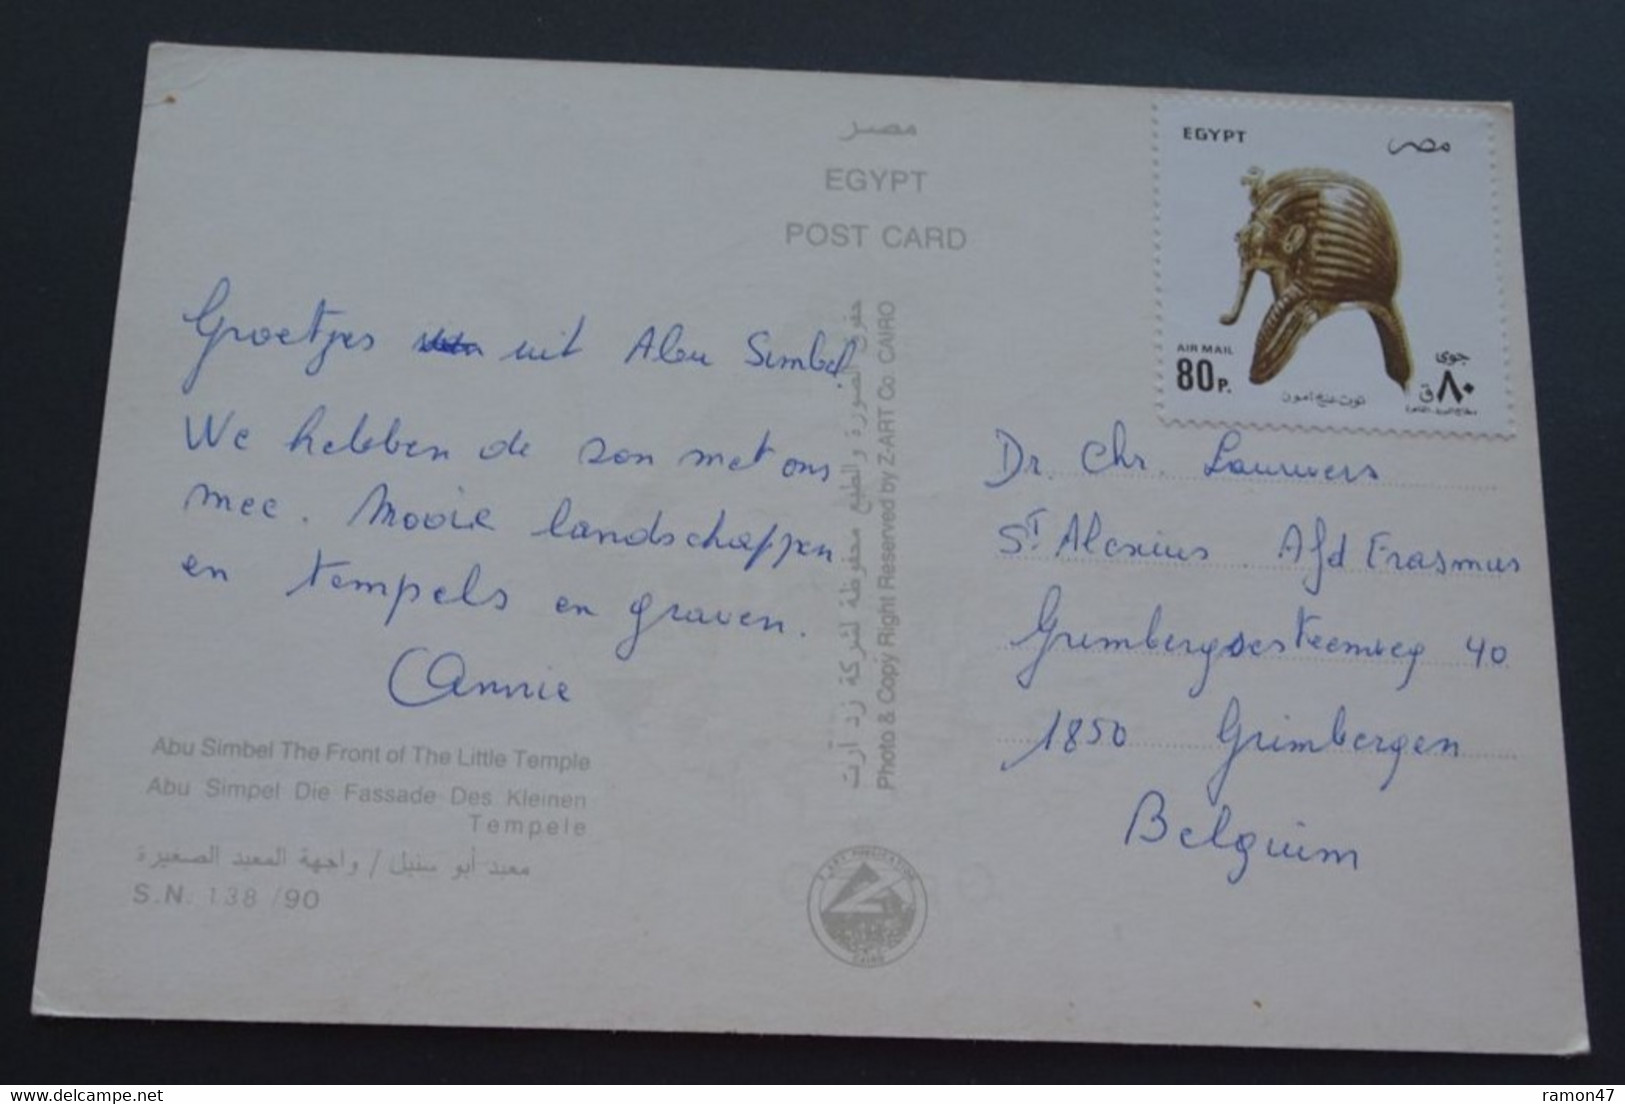 مصر
EGYPT
POST CARD
EGYPT
مصر
AIR MAIL
80 P.
جوى
٨٠ ق
توت عنخ آمون
Groetjes uit Abu Simbel.
We hebben de zon met ons
mee. Mooie landschappen
en tempels en graven.
Annie
Abu Simbel The Front of The Little Temple
Abu Simpel Die Fassade Des Kleinen
Tempele
معبد أبو سنبل / واجهة المعبد الصغيرة
S.N. 138 /90
حقوق الصورة والطبع محفوظة لشركة زد آرت
Photo & Copy Right Reserved by Z-ART Co. CAIRO
CAIRO
Dr. Chr. Lauwers
St Alexius Afd Erasmus
Grimbergsesteenweg 40
1850 Grimbergen
Belguim
ramon47